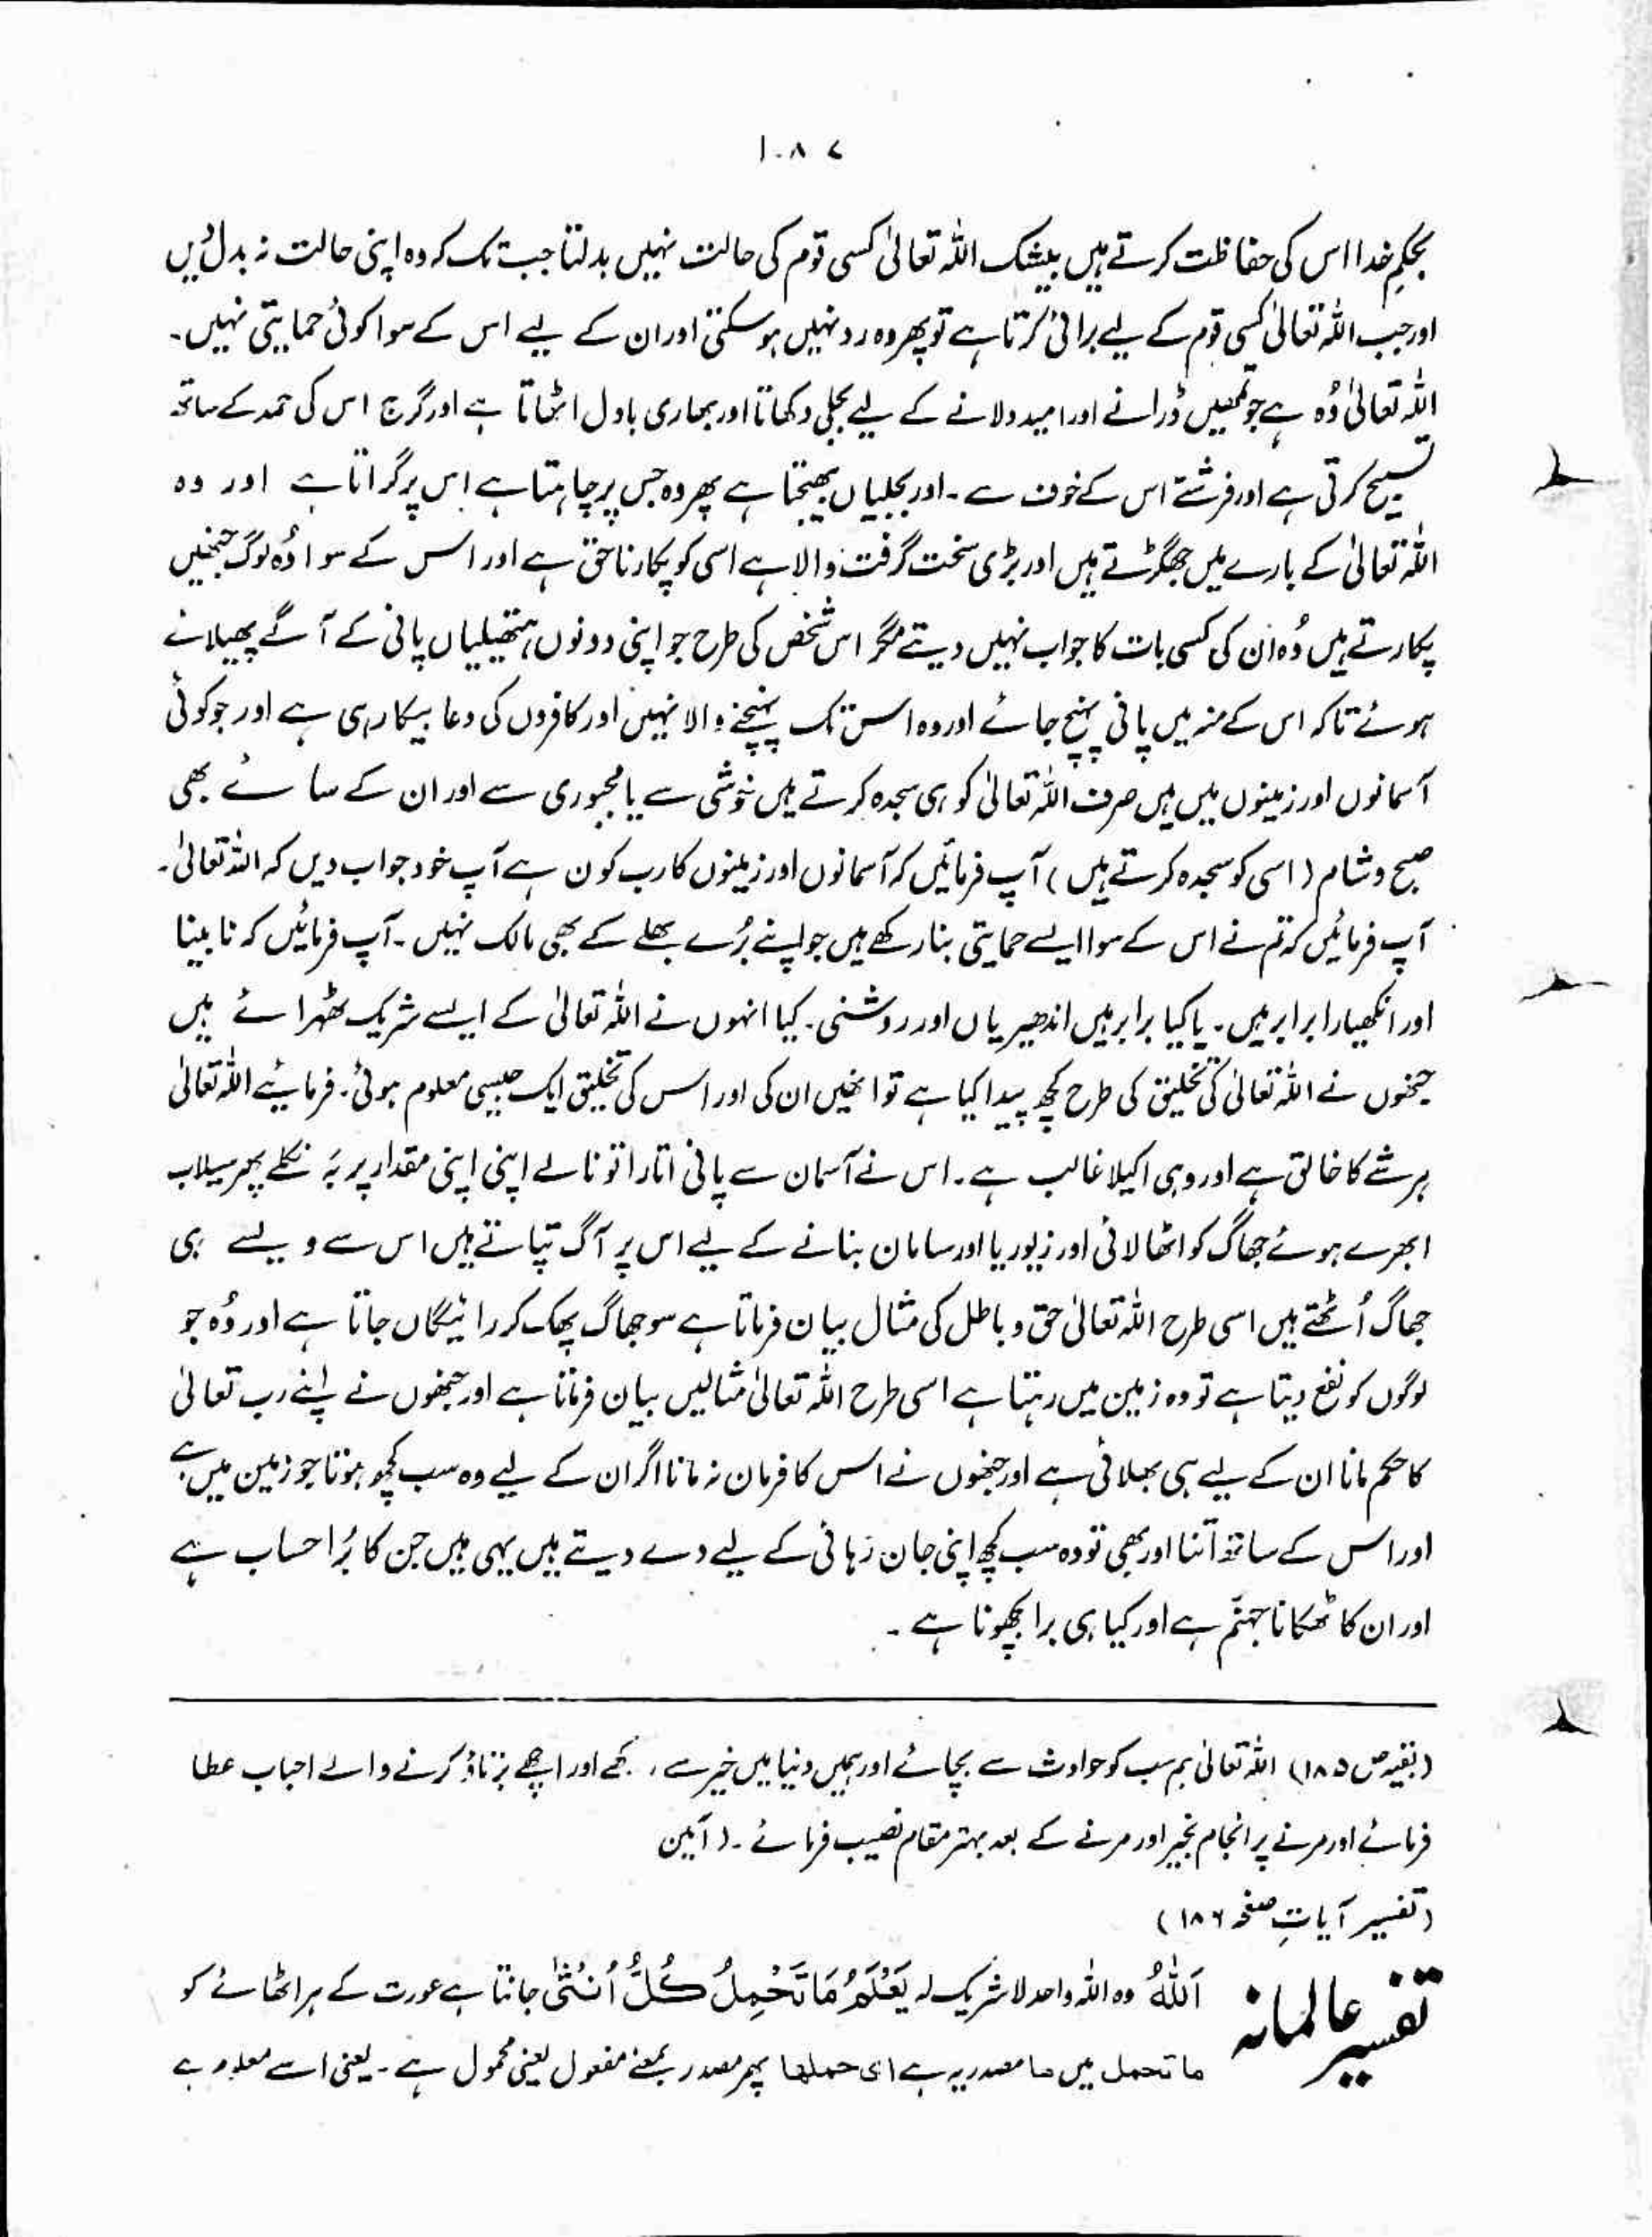 ۱۰۸۷
بحکمِ خدا اس کی حفاظت کرتے ہیں بیشک اللہ تعالیٰ کسی قوم کی حالت نہیں بدلتا جب تک کہ وہ اپنی حالت نہ بدل دیں
اور جب اللہ تعالیٰ کسی قوم کے لیے برائی کرتا ہے تو پھر وہ رد نہیں ہو سکتی اور ان کے لیے اس کے سوا کوئی حمایتی نہیں۔
اللہ تعالیٰ وُہ ہے جو تمھیں ڈرانے اور امید دلانے کے لیے بجلی دکھاتا اور بھاری بادل اٹھاتا ہے اور گرج اس کی حمد کے ساتھ
تسبیح کرتی ہے اور فرشتے اس کے خوف سے۔ اور بجلیاں بھیجتا ہے پھر وہ جس پر چاہتا ہے اس پر گراتا ہے اور وہ
اللہ تعالیٰ کے بارے میں جھگڑتے ہیں اور بڑی سخت گرفت والا ہے اسی کو پکارنا حق ہے اور اس کے سوا وُہ لوگ جنھیں
پکارتے ہیں وُہ ان کی کسی بات کا جواب نہیں دیتے مگر اس شخص کی طرح جو اپنی دونوں ہتھیلیاں پانی کے آگے پھیلائے
ہوئے تاکہ اس کے منہ میں پانی پہنچ جائے اور وہ اس تک پہنچنے والا نہیں اور کافروں کی دعا بیکار ہی ہے اور جو کوئی
آسمانوں اور زمینوں میں ہیں صرف اللہ تعالیٰ کو ہی سجدہ کرتے ہیں خوشی سے یا مجبوری سے اور ان کے سائے بھی
صبح و شام (اسی کو سجدہ کرتے ہیں) آپ فرمائیں کہ آسمانوں اور زمینوں کا رب کون ہے آپ خود جواب دیں کہ اللہ تعالیٰ۔
آپ فرمائیں کہ تم نے اس کے سوا ایسے حمایتی بنا رکھے ہیں جو اپنے بُرے بھلے کے بھی مالک نہیں۔ آپ فرمائیں کہ نابینا
اور انکھیارا برابر ہیں۔ یا کیا برابر ہیں اندھیریاں اور روشنی۔ کیا انہوں نے اللہ تعالیٰ کے ایسے شریک ٹھہرائے ہیں
جنھوں نے اللہ تعالیٰ کی تخلیق کی طرح کچھ پیدا کیا ہے تو انھیں ان کی اور اس کی تخلیق ایک جیسی معلوم ہوئی۔ فرمائیے اللہ تعالیٰ
ہر شے کا خالق ہے اور وہی اکیلا غالب ہے۔ اس نے آسمان سے پانی اتارا تو نالے اپنی اپنی مقدار پر بَہ نکلے پھر سیلاب
ابھرے ہوئے جھاگ کو اٹھا لائی اور زیور یا اور سامان بنانے کے لیے اس پر آگ تپاتے ہیں اس سے ویسے ہی
جھاگ اُٹھتے ہیں اسی طرح اللہ تعالیٰ حق و باطل کی مثال بیان فرماتا ہے سو جھاگ پھک کر رائیگاں جاتا ہے اور وُہ جو
لوگوں کو نفع دیتا ہے تو وہ زمین میں رہتا ہے اسی طرح اللہ تعالیٰ مثالیں بیان فرماتا ہے اور جنھوں نے اپنے رب تعالیٰ
کا حکم مانا ان کے لیے ہی بھلائی ہے اور جنھوں نے اس کا فرمان نہ مانا اگر ان کے لیے وہ سب کچھ ہوتا جو زمین میں ہے
اور اس کے ساتھ اتنا اور بھی تو وہ سب کچھ اپنی جان رہائی کے لیے دے دیتے ہیں یہی ہیں جن کا بُرا حساب ہے
اور ان کا ٹھکانا جہنّم ہے اور کیا ہی برا بچھونا ہے۔
(بقیہ ص ۱۸۵) اللہ تعالیٰ ہم سب کو حوادث سے بچائے اور ہمیں دنیا میں خیر سے رکھے اور اچھے برتاؤ کرنے والے احباب عطا
فرمائے اور مرنے پر انجام بخیر اور مرنے کے بعد بہتر مقام نصیب فرمائے۔ (آمین
(تفسیر آیاتِ صفحہ ۱۸۶)
تفسیر عالمانہ
اَللّٰہُ وہ اللہ واحد لا شریک لہ یَعْلَمُ مَا تَحْمِلُ کُلُّ اُنْثٰی جانتا ہے عورت کے ہر اٹھائے کو
ما تحمل میں ما مصدریہ ہے ای حملها پھر مصدر بمعنے مفعول یعنی محمول ہے۔ یعنی اسے معلوم ہے